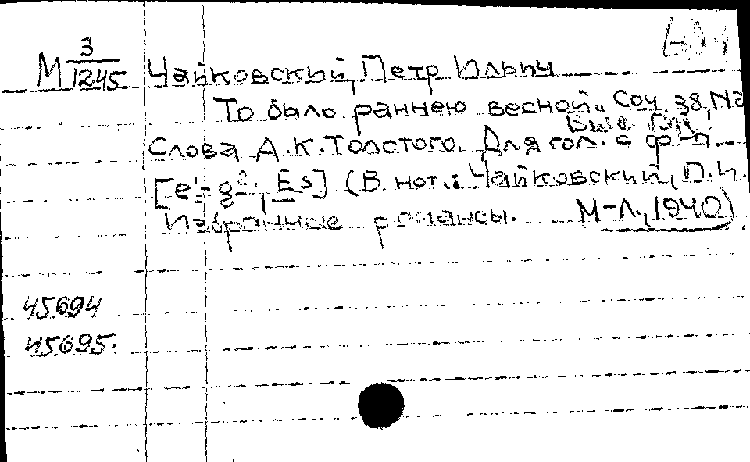 М 3/1245 Чайковский, Петр Ильич
То было раннею весной. Соч. 38, №2
Слова А.К. Толстого. Для гол. с ф-п.
[e¹-g², Es] (В нот.: Чайковский, П.И.
Избранные романсы. М-Л., 1940)
45694
45695.